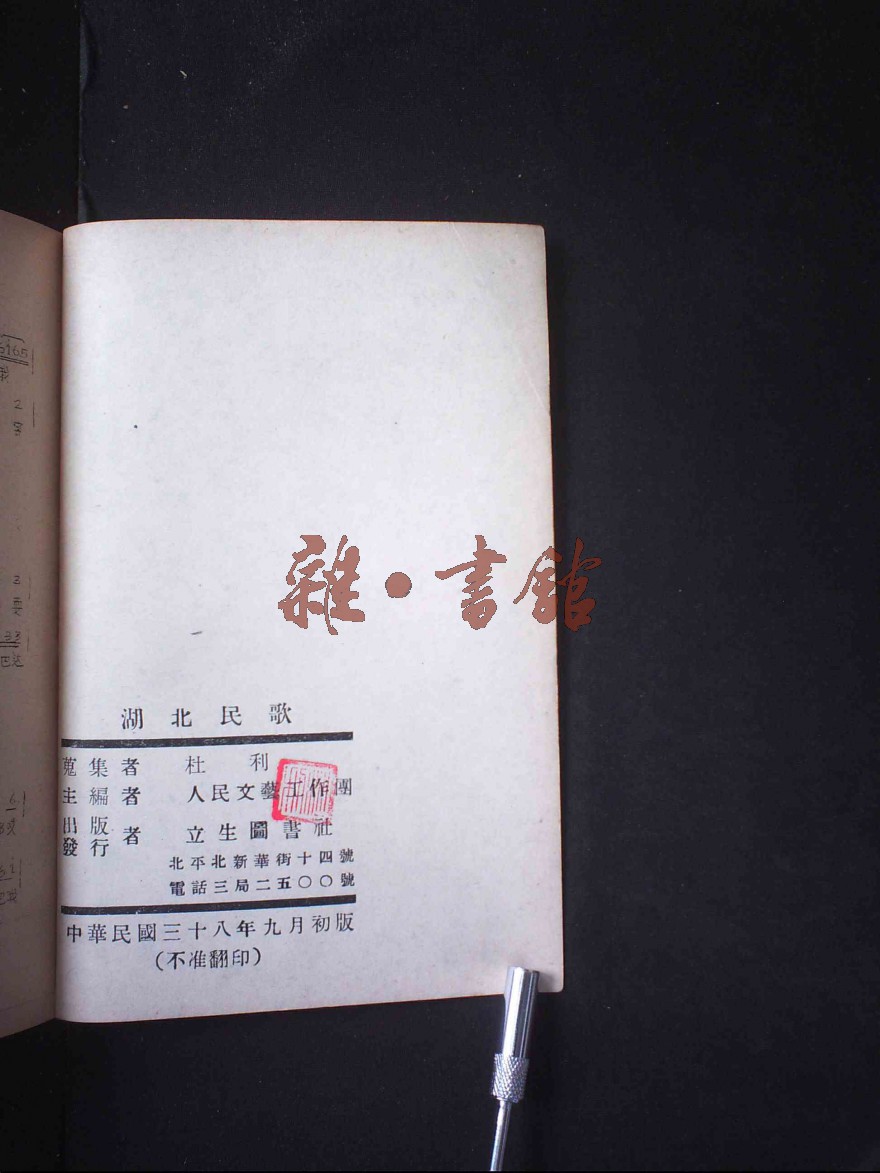 6165
2
2
要
33
6
雜·書館
湖北民歌
蒐集者 杜利
主編者 人民文藝工作團
出版發行者 立生圖書社
北平北新華街十四號
電話三局二五〇〇號
中華民國三十八年九月初版
(不准翻印)